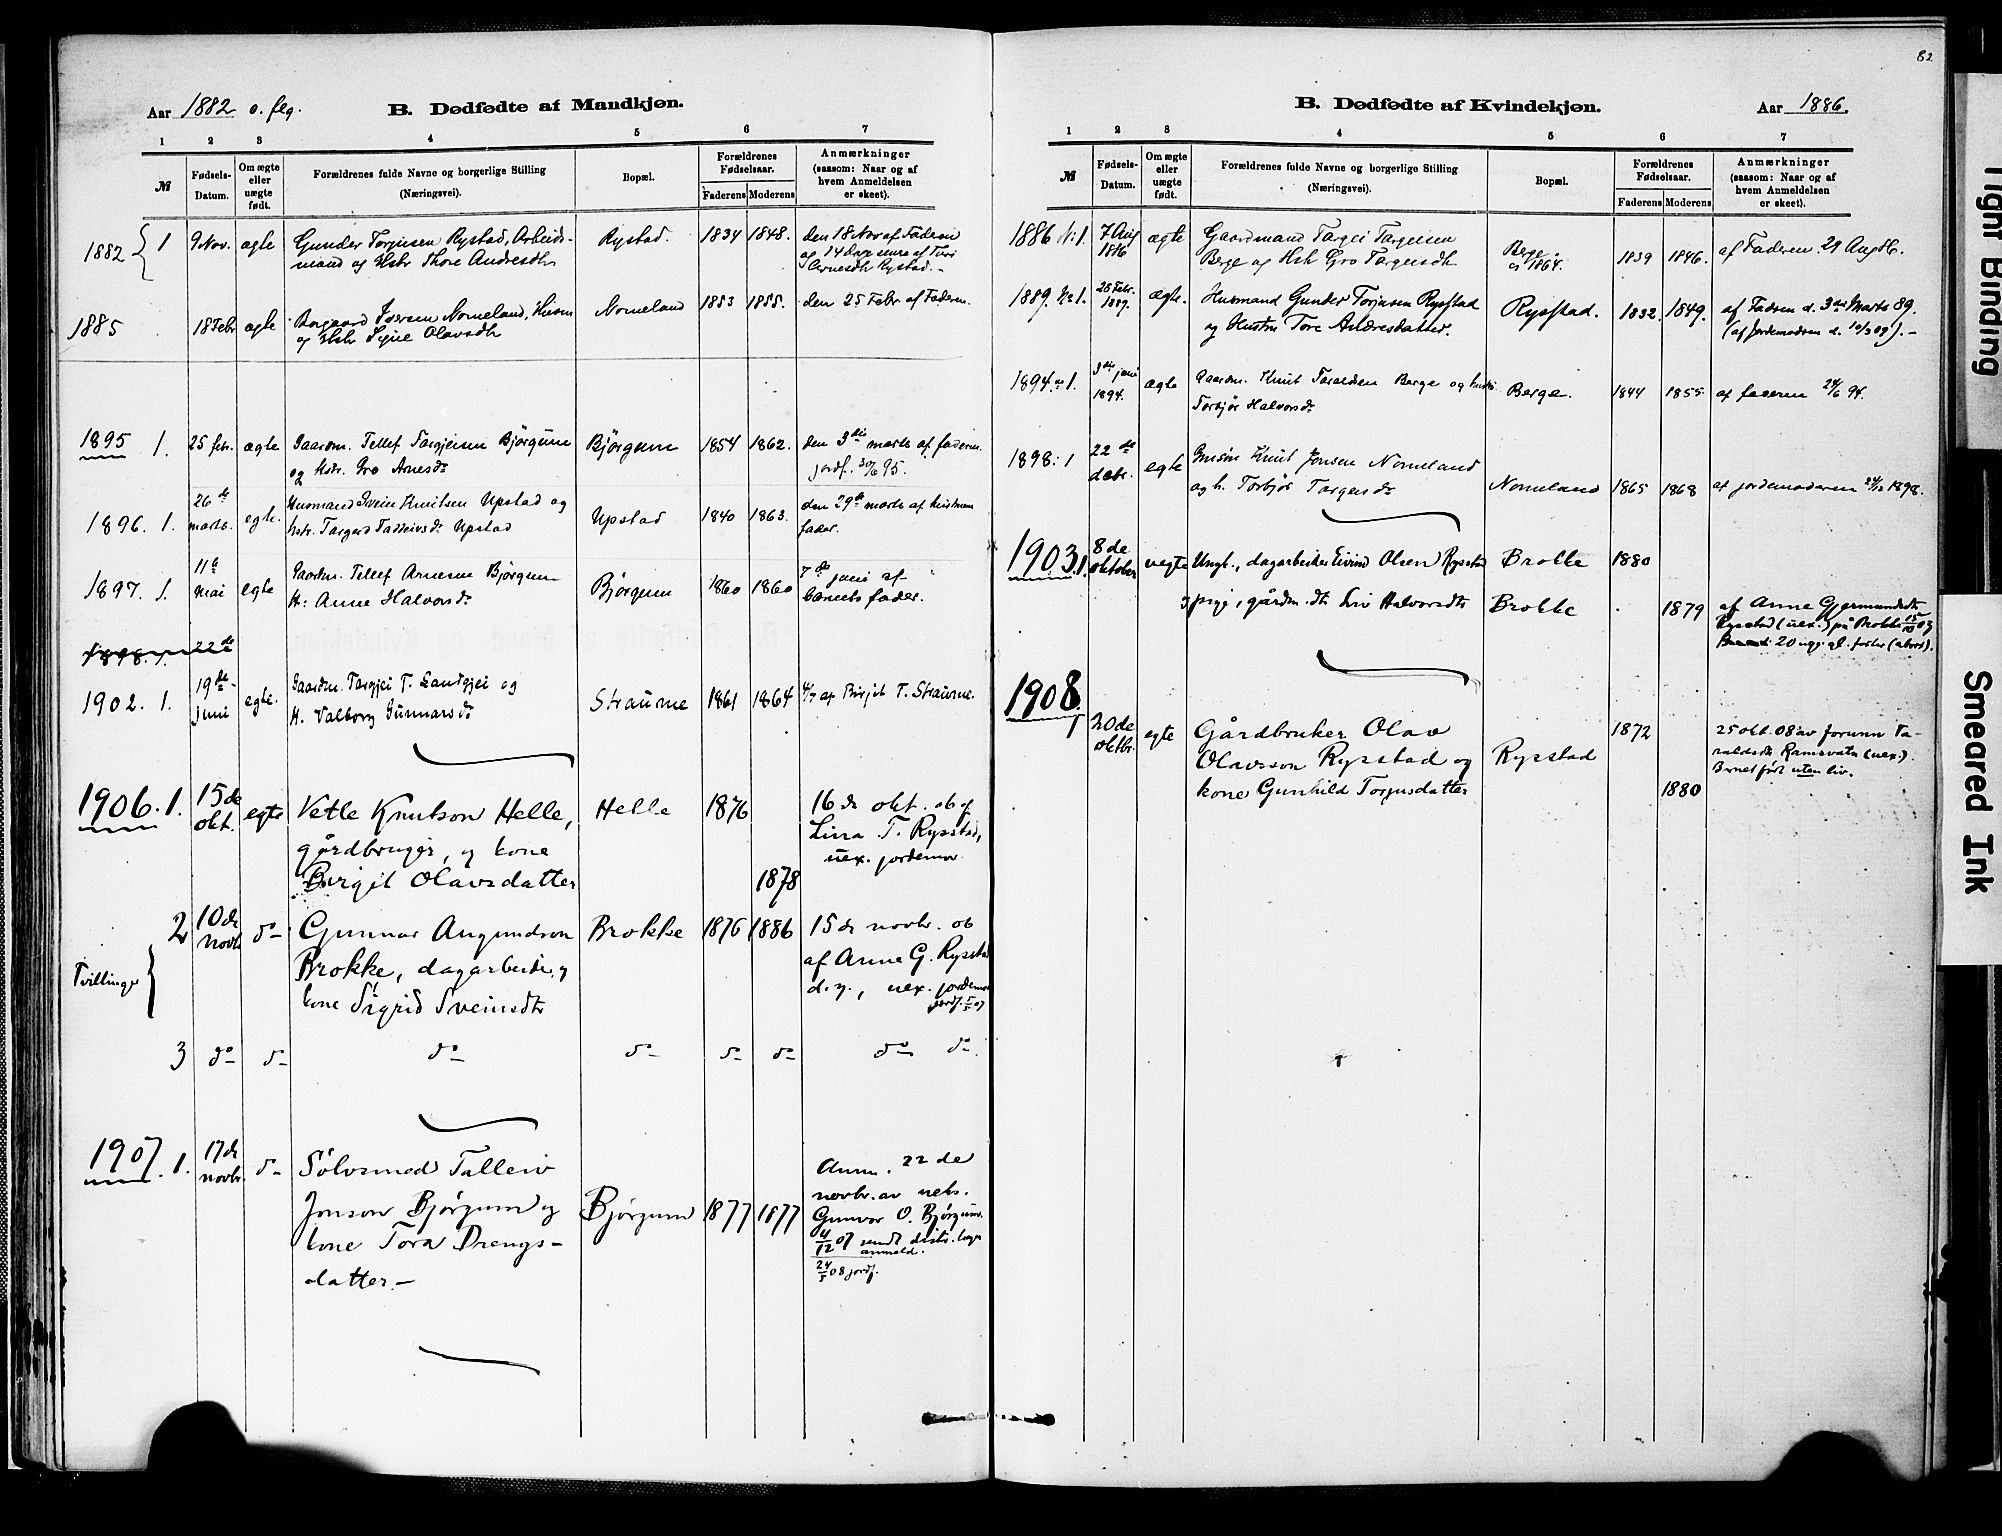 82
Aar 1882 o. flg.
B. Dødfødte af Mandkjøn.
1 2 3 4 5 6 7
№
Fødsels-Datum.
Om ægte eller uægte født.
Forældrenes fulde Navne og borgerlige Stilling
(Næringsvei).
Bopæl.
Forældrenes Fødselsaar.
Faderens Moderens
Anmærkninger
(saasom: Naar og af
hvem Anmeldelsen
er skeet).
1882 1 9 Nov. ægte Gunder Torjusen Rystad, Arbeids- Rystad. 1834 1848. den 18 Nov af Faderen
mand og Hstr Thore Andresdtr
og 14 dage senere af Turi
Arnesdtr Rystad.
1885 18 Febr ægte Aasgaard Iversen Nomeland, Husm Nomeland 1853 1855. den 25 Febr af Faderen.
og Hstr Signe Olavsdtr
1895 1. 25 febr. ægte Gaardm. Tellef Targjeisen Bjørgum Bjørgum 1854 1862. den 3die marts af faderen.
og Hstr. Gro Arnesdr jordf. 30/6 95.
1896. 1. 26de marts. egte. Husmand Svein Knutsen Upstad og Upstad 1840 1863. den 29de marts af
hstr. Targerd Tadleivsdr Upstad fader.
1897. 1. 11te mai egte Gaardm. Tellef Arnesen Bjørgum Bjørgum 1860 1860 7de juni af
H: Anne Halvorsdr barnets fader.
1898. 1. 22de
1902. 1. 19de juni egte. Gaardm. Targjei T. Sandgjei og Straume 1861 1864 4/7 af Birgit T. Straume.
H. Valborg Gunnarsdr
1906. 1. 15de okt. egte Vetle Knutson Helle, Helle 1876 16de okt. 06 af
gårdbruger, og kone Lina T. Rysstad,
Birgit Olavsdatter 1878 uex. jordemor.
Tvillinger
2 10de novbr do Gunnar Augundson Brokke 1876 1886 15de novbr. 06
Brokke, dagarbeider, og af Anne G. Rysstad
kone Sigrid Sveinsdtr d. y., uex. jordemor
jordf. 5/5 07
3 do do do do do do do do
1907. 1. 17de novbr. do Sølvsmed Talleiv
Jonson Bjørgum og Bjørgum 1877 1877
kone Tora Drengs-
datter.
Anm. 22de
novbr. av
Gunvor O. Bjørgum.
4/12 07 sendt distr. læge
anmeld.
24/5 08 jordf.
B. Dødfødte af Kvindekjøn.
Aar 1886.
1 2 3 4 5 6 7
№
Fødsels-Datum.
Om ægte eller uægte født.
Forældrenes fulde Navne og borgerlige Stilling
(Næringsvei).
Bopæl.
Forældrenes Fødselsaar.
Faderens Moderens
Anmærkninger
(saasom: Naar og af
hvem Anmeldelsen
er skeet).
1886 №1. 7 Aug 1886 ægte Gaardmand Targei Targeisen Berge 1839 1846. af Faderen 29 Aug 86.
Berge og Hstr Gro Targeisdtr
1889. №1. 25 Febr. 1889. ægte. Husmand Gunder Torjusen Rysstad Rysstad. 1832. 1849. af Faderen d. 3die Marts 89.
og Hustru Tore Andresdatter. (af Jordemoderen d. 10/3 89).
1894. №1. 3die juni 1894. ægte Gaardm. Knut Taraldsen Berge og hustr Berge. 1844 1855 af faderen 24/6 94.
Torbjør Halvorsdr
1898. 1 22de debr. egte Knut Jonsen Nomeland Nomeland 1865 1868 af jordemoderen 24/12 1898.
og h. Torbjør Targeisdr
1903. 1. 8de oktober uegte Ungk., dagarbeider Eivind Olsen Rysstad Brokke 1880
pige, gårdm.dtr Liv Halvorsdtr Brokke 1879 af Anne Gjermundsdtr
Rysstad (uex.) på Brokke 15/10 03
20 ugr. gl. foster (abort).
1908. 1 20de oktbr. egte Gårdbruker Olav 1872 25 okt. 08 av Jorunn Ta-
Olavsson Rysstad og Rysstad raldsdtr Ramsvatn (uex.).
kone Gunhild Torjusdatter 1880 Barnet født uten liv.
Tight Binding
Smeared Ink